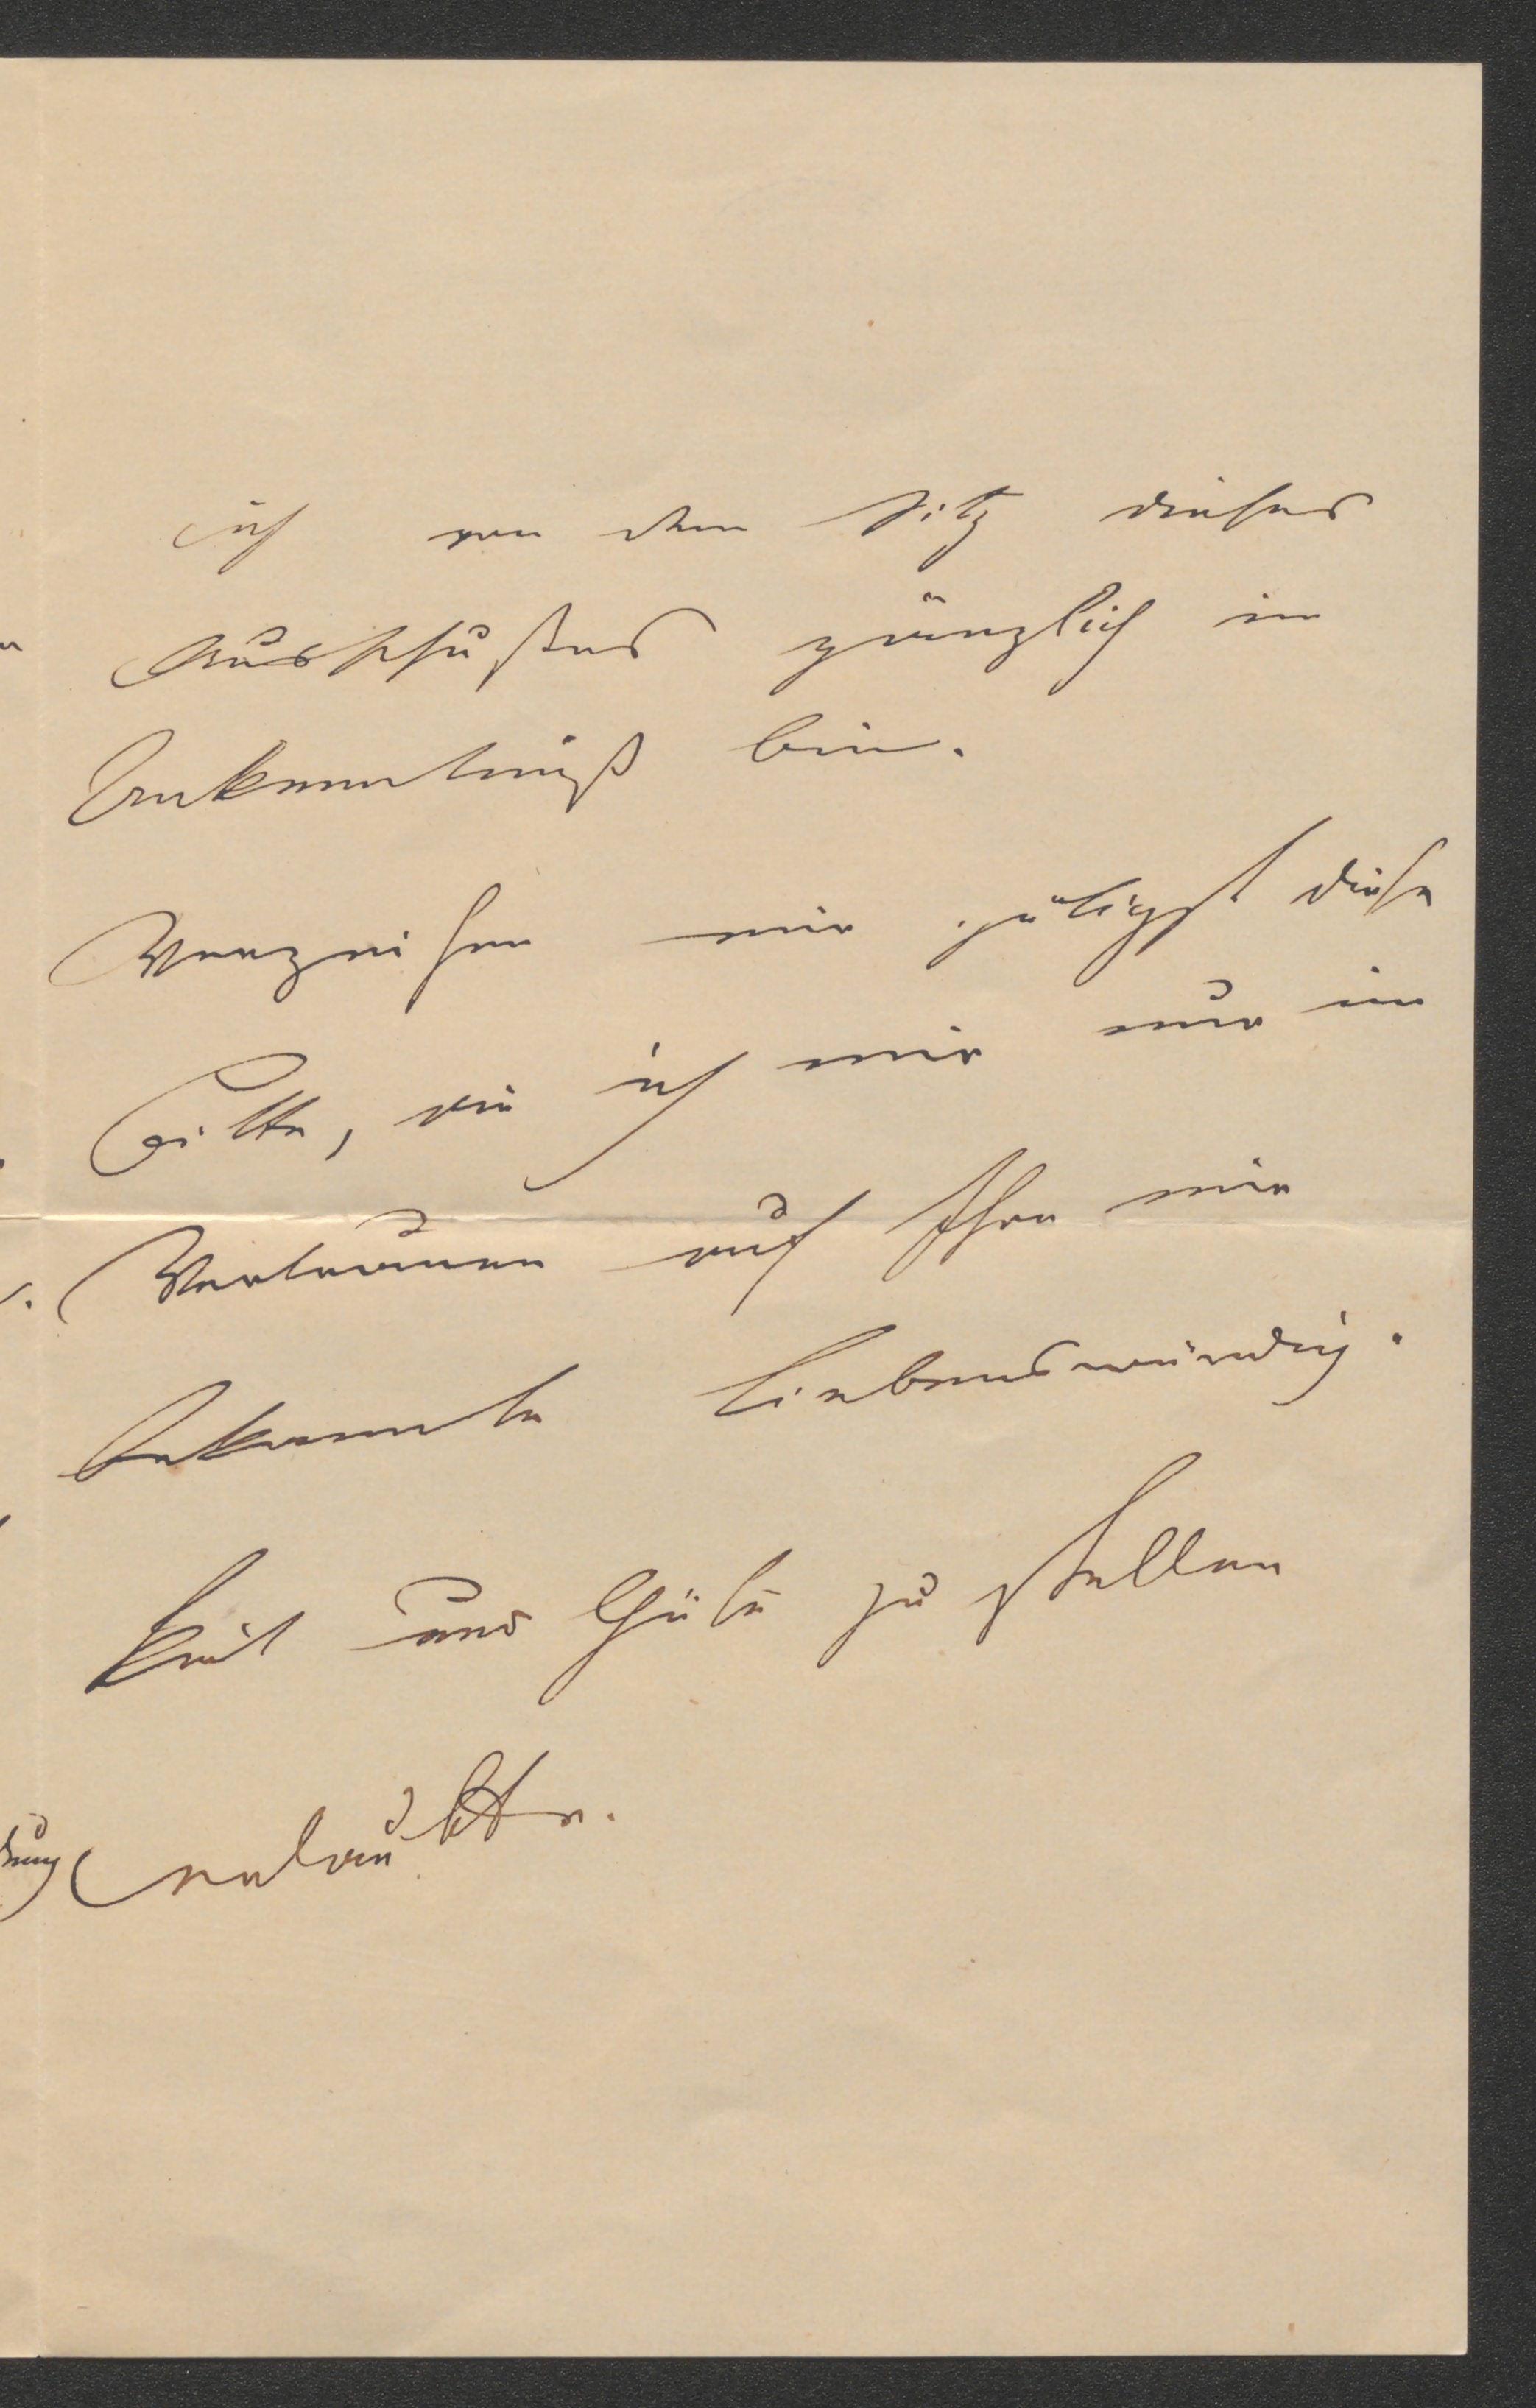 ich von dem Sitz dieses
Ausschußes gänzlich in
Unkenntniß bin.
Verzeihen mir gütigst diese
Bitte, die ich mir nur im
Vertrauen auf Ihre mir
bekannte Liebenswürdig-
keit und Güte zu stellen
erlaubte.